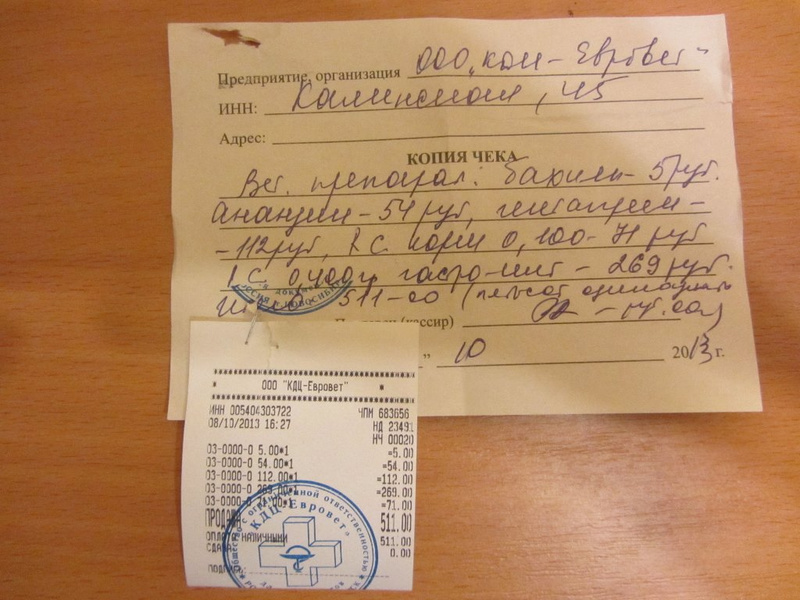 Предприятие, организация ООО „КДЦ - Евровет"
ИНН: Калинская, 45
Адрес:
КОПИЯ ЧЕКА
Вет. препарат: бахилы - 5 руб.
Анандин - 54 руб,
- 112 руб, R.C. корм 0,100 - 71 руб
R.C. 0,400 гастро-инт - 269 руб.
511-00 (пятьсот одиннадцать
(кассир) - руб. 00)
" 10 2013 г.
ООО "КДЦ-Евровет"
ИНН 005404303722 ЧПМ 683656
08/10/2013 16:27 НД 23491
НЧ 00020
03-0000-0 5.00*1 =5.00
03-0000-0 54.00*1 =54.00
03-0000-0 112.00*1 =112.00
03-0000-0 269.00*1 =269.00
03-0000-0 71.00*1 =71.00
ПРОДАЖА 511.00
ОПЛАТА НАЛИЧНЫМИ 511.00
СДАЧА 0.00
Общество с ограниченной ответственностью
КДЦ "Евровет"